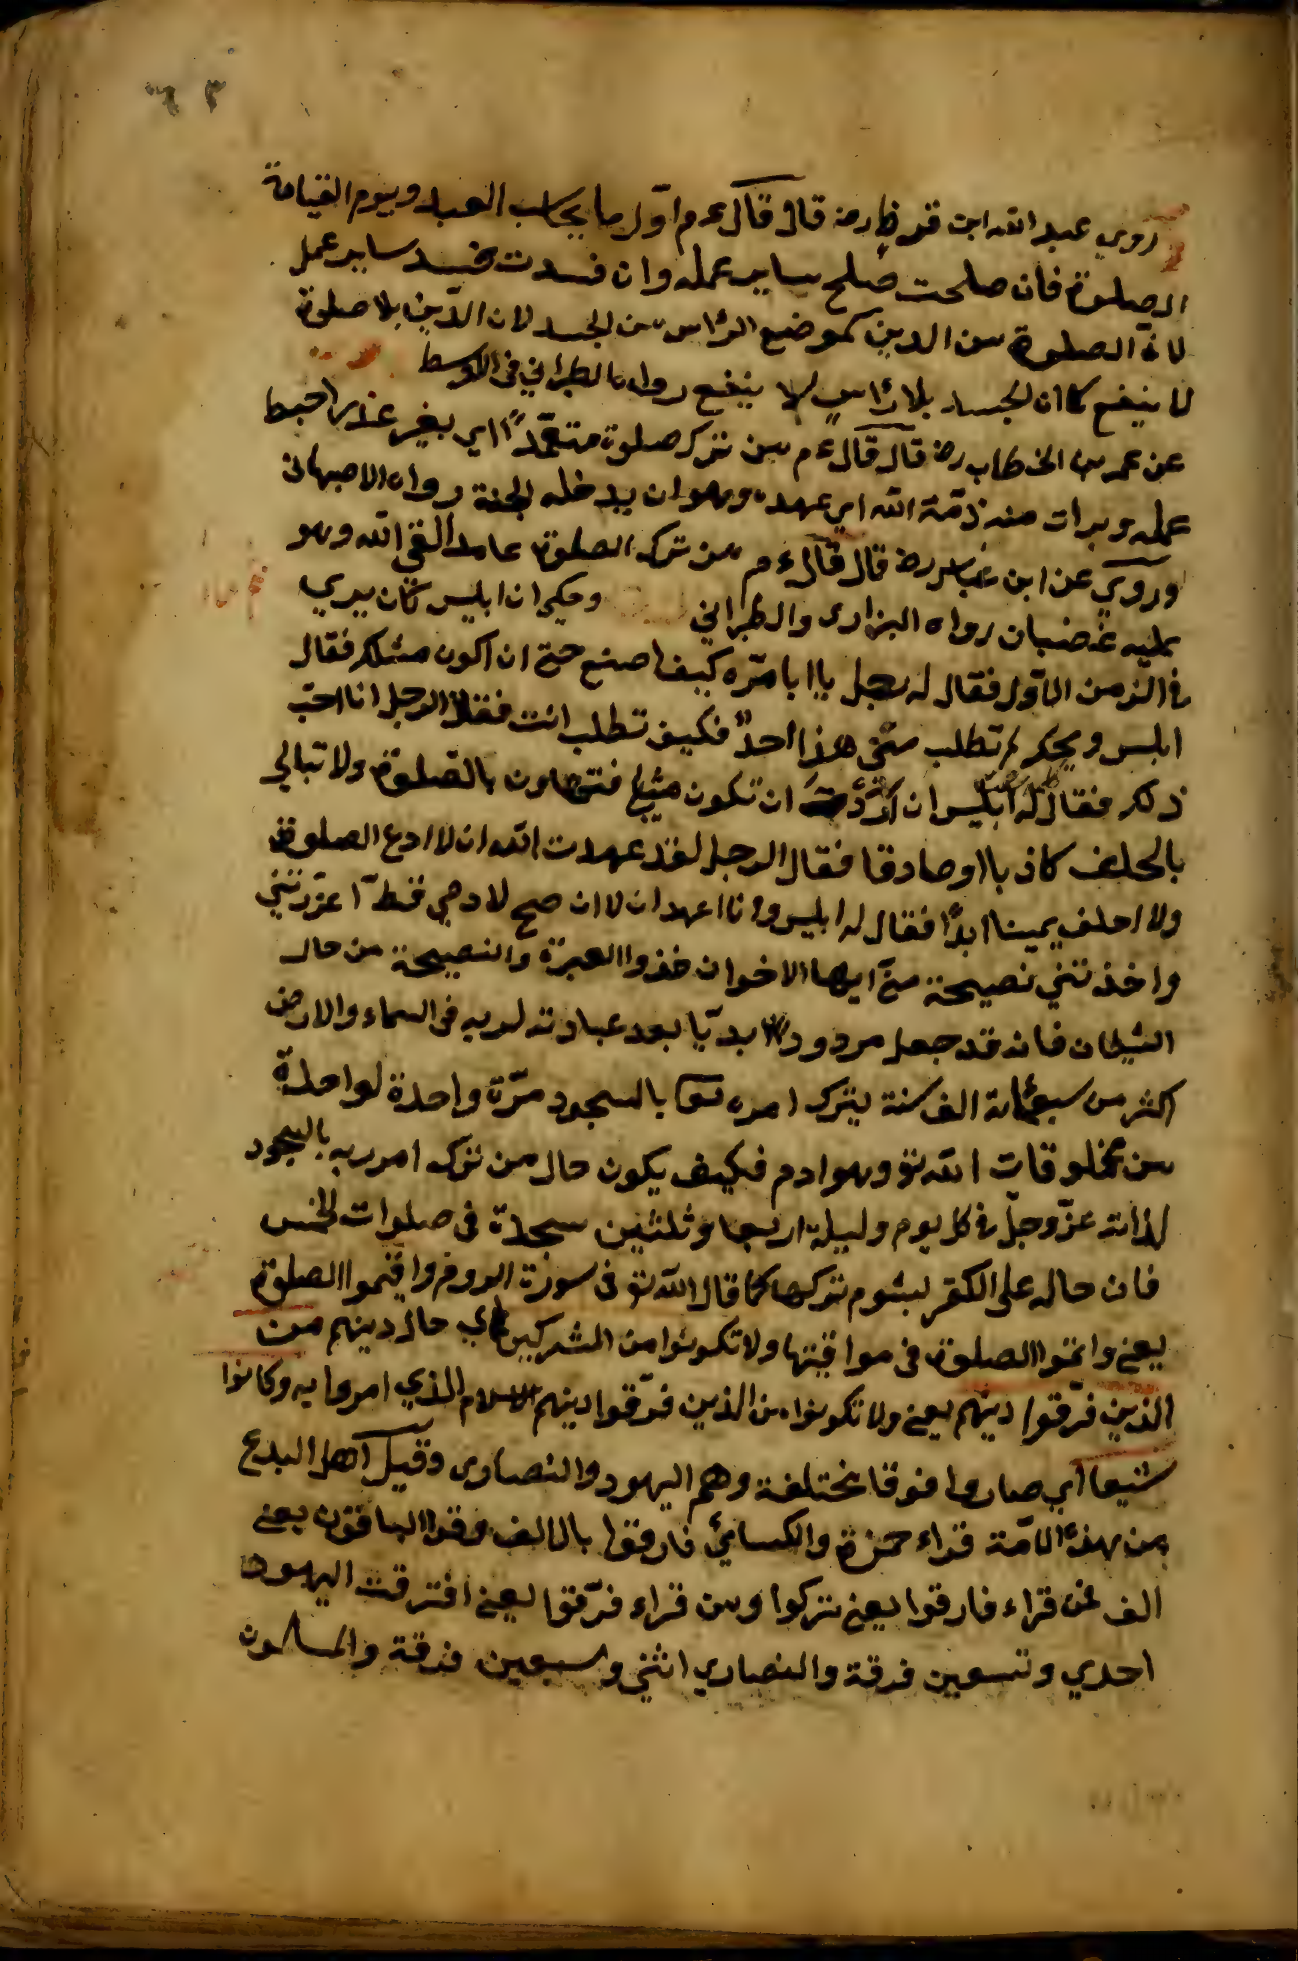 ٦٣
روي عبد الله ابن قرظ رضه قال قال ء م اوّل ما يحاسب العبد وبيوم القيامة
الصلوة فان صلحت صلح ساير عمله وان فسدت فسد ساير عمل
لانه الصلوة من الدين كموضع الرأس من الجسد لان الدّين بلا صلوة
لا ينفع كما ان الجسد بلا رأسٍ لا ينفع رواه الطبراني في الاوسط
عن عمر بن الخطاب رضه قال قال ء م من ترك صلوة متعمّدًا اي بغير عذر احبط
عمله وبرات منه ذمّة الله اي عهده وهو ان يدخله الجنة رواه الاصبهاني
وروي عن ابن عباس رضه قال قال ء م من ترك الصلوة عامدا لقي الله وهو
عليه غضبان رواه البزارى والطبراني وحكي ان ابليس كان يري
في الزمن الاوّل فقال له رجل يا ابا مرّه كيف اصنع حتى ان اكون مثلك فقال
ابلس ويحك لم تطلب منّي هذا احدٌ فكيف تطلب انت فقال الرجل انا احبّ
ذلك فقال له ابليس ان اردت ان تكون مثلي فتهاون بالصّلوة ولا تبالي
بالحلف كاذبا او صادقا فقال الرجل لقد عهدت الله ان لا ادع الصلوة
ولا احلف يمينا ابدًا فقال له ابليس وانا اعهد ان لا ان صح لادمي قطّ اعزرتني
واخذتني نصيحة منّي ايها الاخوان خذوا العبرة والنصيحة من حال
الشيطان فانه قد جعل مردودا ابديّا بعد عبادته لربه في السماء والارض
اكثر من سبعمائة الف سنة بترك امره تعا بالسجود مرّة واحدة لواحدة
من مخلوقات الله تع وهو ادم فكيف يكون حال من ترك امر ربه بالسجود
لذاته عزّ وجلّ في كل يوم وليلة اربعا وثلثين سجدة في صلوات الخمس
فان حاله على الكفر لبشوم تركها كما قال الله تع في سورة الروم واقيموا الصلوة
يعني واتمّوا الصلوة في مواقيتها ولا تكونوا من المشركين اي حال دينهم من
الذين فرّقوا دينهم يعني ولا تكونوا من الذين فرّقوا دينهم الاسلام الذي امروا به وكانوا
شيعا اي صاروا فرقا مختلفة وهم اليهود والنصارى وقيل اهل البدع
من هذه الامّة قراء حمزة والكسائي فارقوا بالالف وقرا الباقون بعني
الف فمن قراء فارقوا يعني تركوا ومن قراء فرّقوا يعني افترقت اليهود
احدي وتسعين فرقة والنصاري اثني وسبعين فرقة والمسلمون